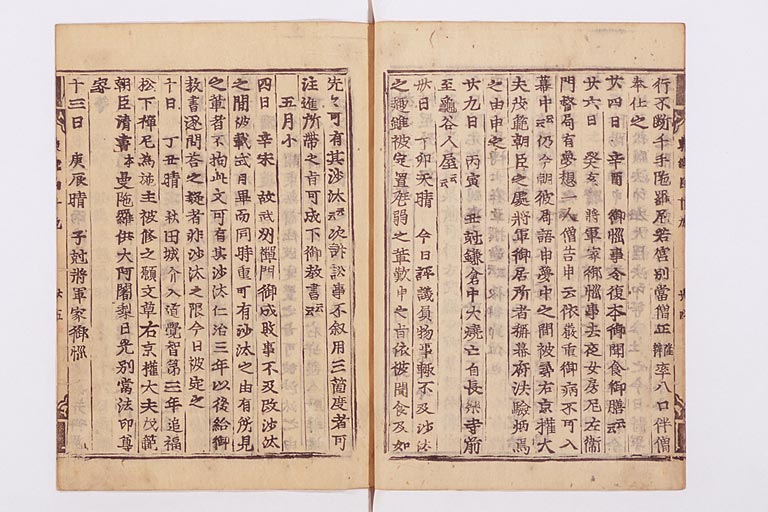 行不断千手陀羅尼若宮別当僧正隆弁率八口伴僧
奉仕之
廿四日 辛酉 御惱事令復本御聞食御膳云云
廿六日 癸亥 将軍家御惱事去夜女房尼左衛
門督局有夢想一人僧告申云依厳重御病不可入
幕中云云仍今朝彼局語申夢中之間被談右京権大
夫茂範朝臣之處将軍御居所者称幕府法験炳焉
之由申之
廿九日 丙寅 丑尅鎌倉中大焼亡自長楽寺前
至龜谷人屋云云
卅日 丁卯天晴 今日評議員物事輙不及沙汰
之趣雖被定置尫弱之輩歎申之旨依彼聞食及如
先々可有其沙汰云云次訴訟事不叙用三箇度者可
注進所帯之旨可成下御教書云云
五月小
四日 辛未 故武州禅門御成敗事不及改沙汰
之間被載式目畢而同時重可有沙汰之由有所見
之輩者不拘此文可有其沙汰仁治三年以後給御
教書遂問答之疑者非沙汰之限今日被定之
十日 丁丑晴 秋田城介入道覺智第三年追福
松下禅尼為施主被修之願文草右京権大夫茂範
朝臣清書 曼陀羅供大阿闍梨日光別当法印尊
家
十三日 庚辰晴 子尅将軍家御惱